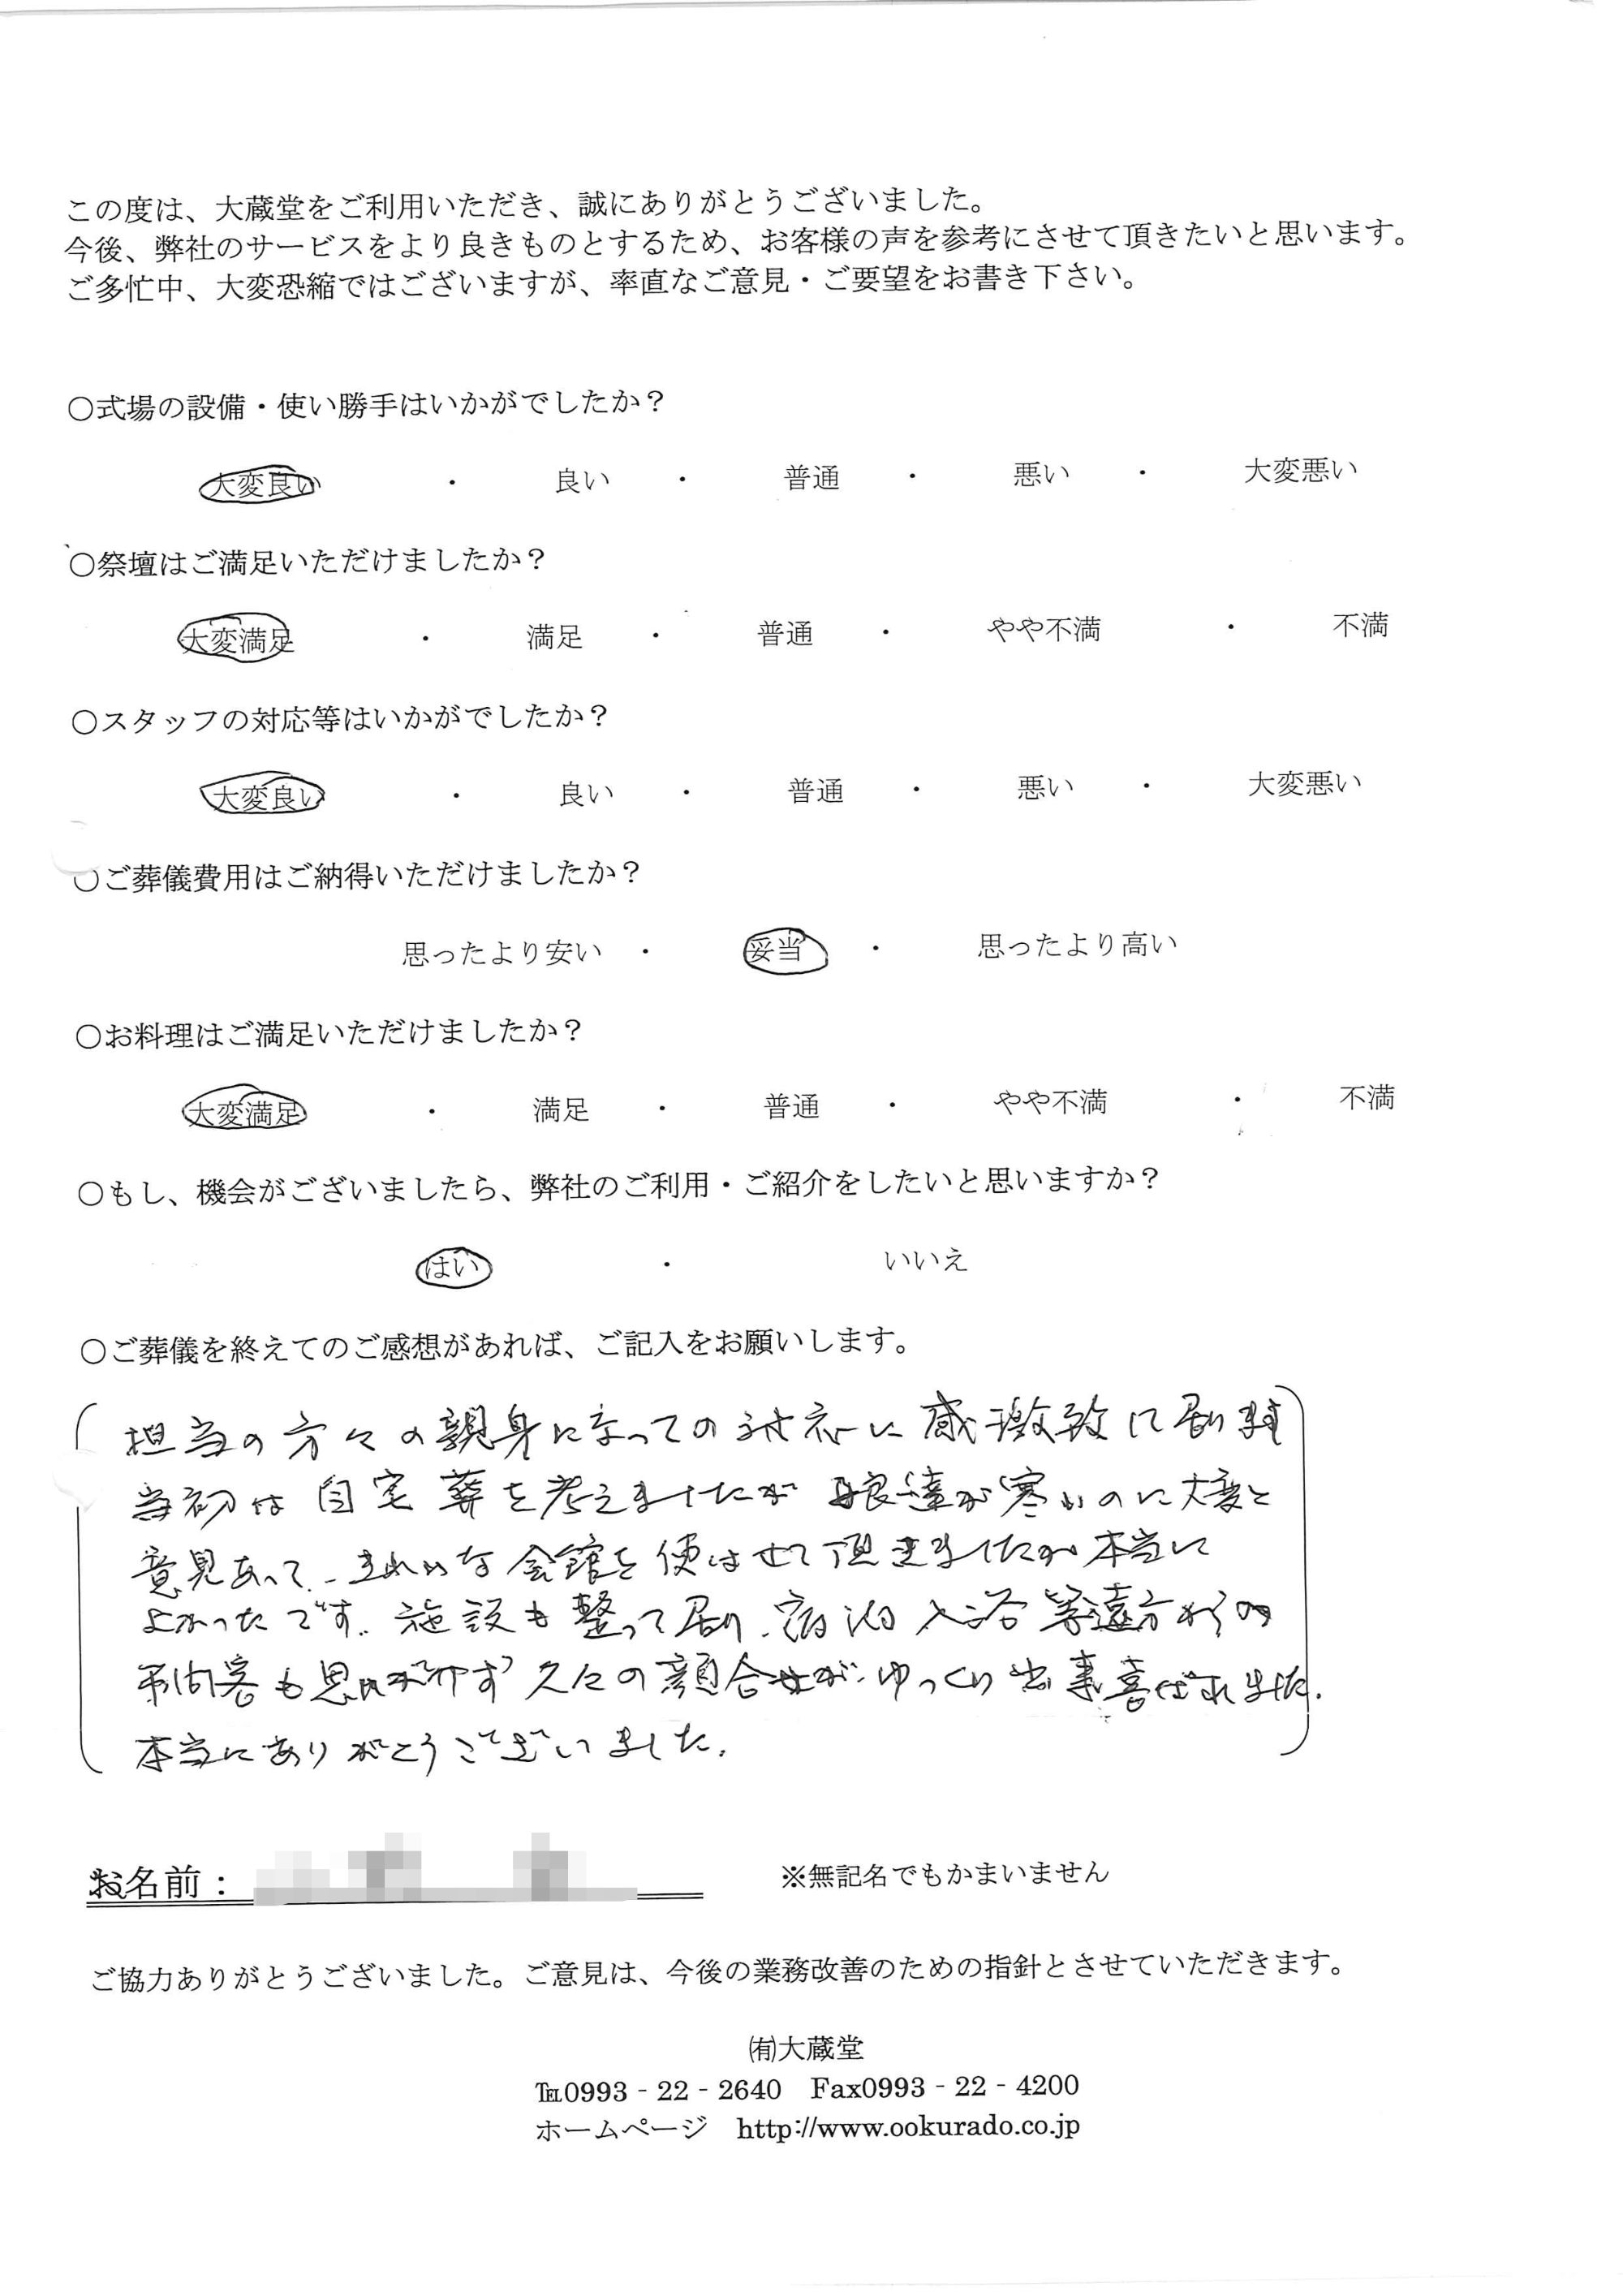 この度は、大蔵堂をご利用いただき、誠にありがとうございました。
今後、弊社のサービスをより良きものとするため、お客様の声を参考にさせて頂きたいと思います。
ご多忙中、大変恐縮ではございますが、率直なご意見・ご要望をお書き下さい。
○式場の設備・使い勝手はいかがでしたか?
大変良い ・ 良い ・ 普通 ・ 悪い ・ 大変悪い
○祭壇はご満足いただけましたか?
大変満足 ・ 満足 ・ 普通 ・ やや不満 ・ 不満
○スタッフの対応等はいかがでしたか?
大変良い ・ 良い ・ 普通 ・ 悪い ・ 大変悪い
○ご葬儀費用はご納得いただけましたか?
思ったより安い ・ 妥当 ・ 思ったより高い
○お料理はご満足いただけましたか?
大変満足 ・ 満足 ・ 普通 ・ やや不満 ・ 不満
○もし、機会がございましたら、弊社のご利用・ご紹介をしたいと思いますか?
はい ・ いいえ
○ご葬儀を終えてのご感想があれば、ご記入をお願いします。
担当の方々の親身になっての対応に感激致して居ります
当初は自宅葬を考えましたが娘達が寒いのに大変と
意見あって、きれいな会館を使はせて頂きましたが本当に
よかったです。施設も整って居り、宿泊入浴等遠方からの
弔問客も思いがけず久々の顔合せが、ゆっくり出来喜ばれました。
本当にありがとうございました。
お名前: ※無記名でもかまいません
ご協力ありがとうございました。ご意見は、今後の業務改善のための指針とさせていただきます。
㈲大蔵堂
℡0993‐22‐2640 Fax0993‐22‐4200
ホームページ http://www.ookurado.co.jp